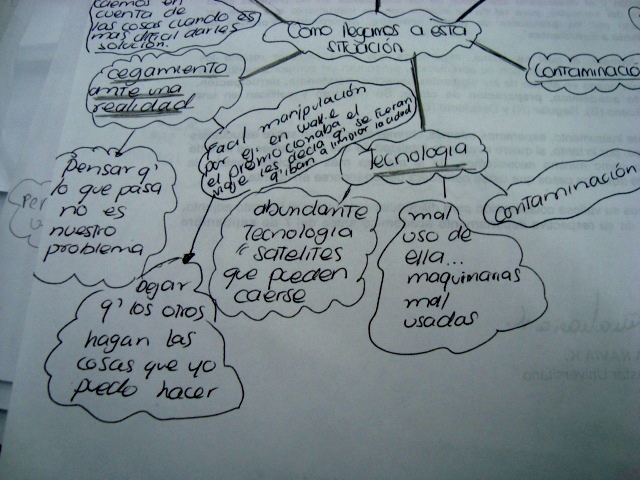 caemos en
cuenta de
las cosas cuando es
mas dificil darles
solución.
Como llegamos a esta
situación
cegamiento
ante una
realidad
contaminació
Facil manipulación
por ej: en wall-e
el promocionaba el
viaje les decia q' se fueran
q' iban a limpiar la ciudad
Tecnologia
contaminación
pensar q'
lo que pasa
no es
nuestro
problema
abundante
Tecnologia
satelites
que pueden
caerse
mal
uso de
ella...
maquinarias
mal
usadas
Dejar
q' los otros
hagan las
cosas que yo
puedo hacer